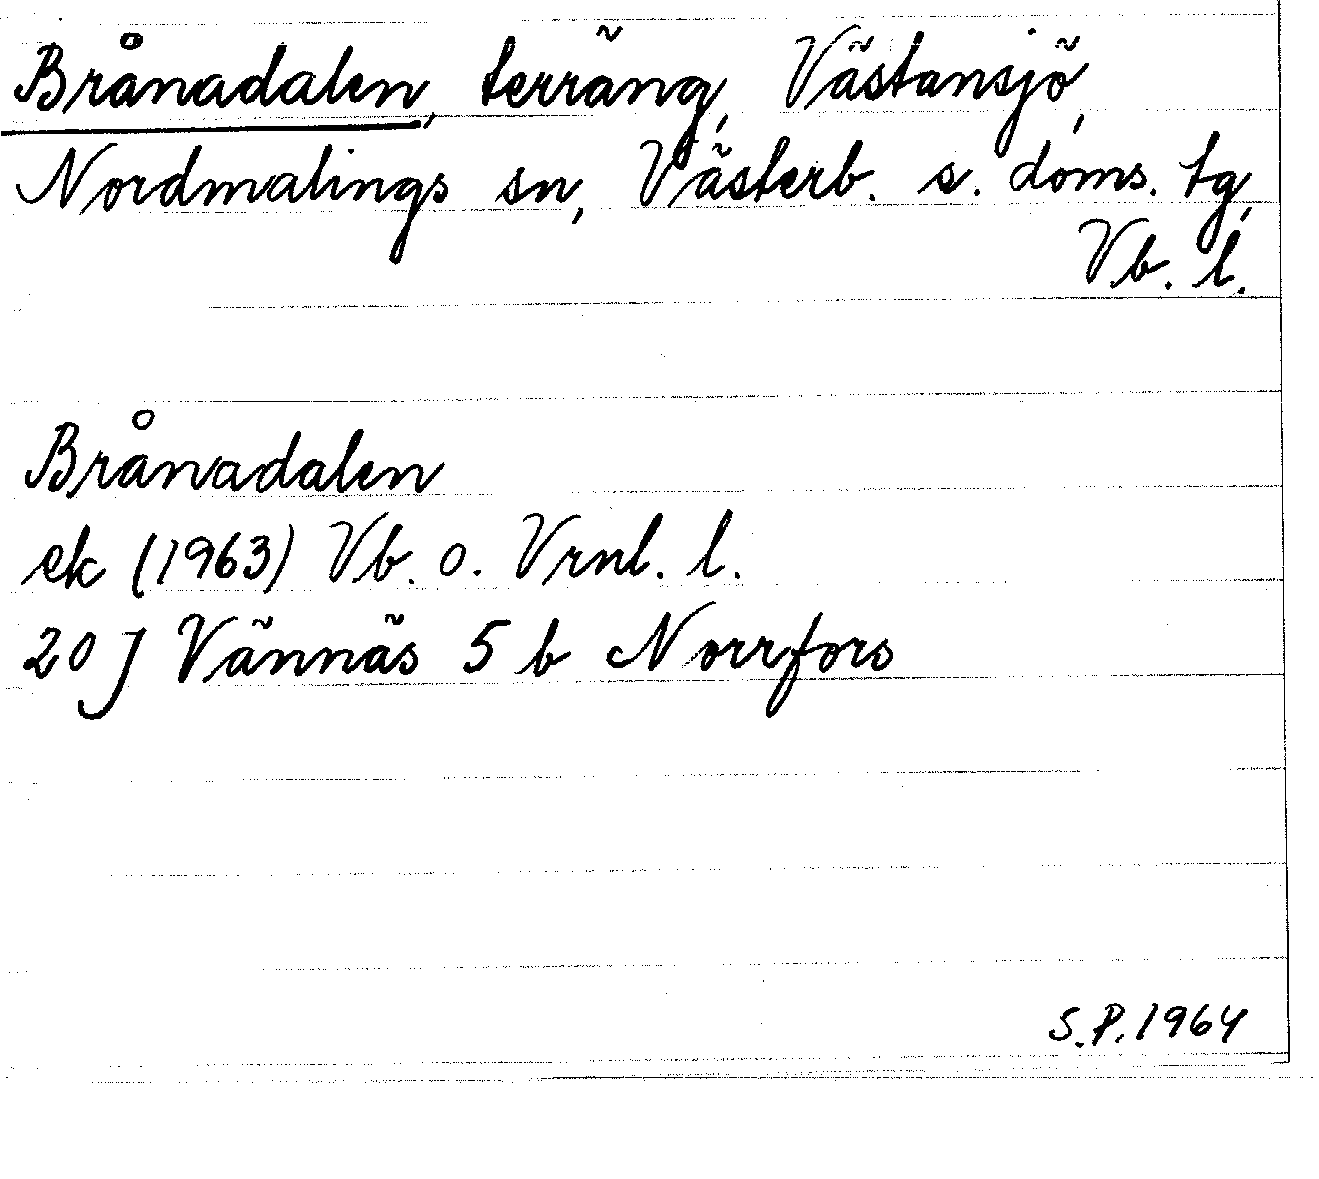 Brånadalen, terräng, Västansjö,
Nordmalings sn, Västerb. s. doms. tg,
Vb. l.
Brånadalen
ek (1963) Vb. o. Vrnl. l.
20 J Vännäs 5 b Norrfors
S.P. 1964